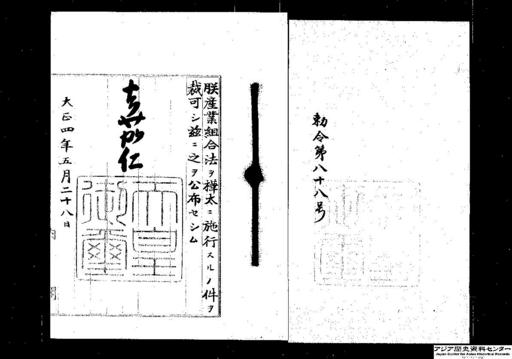 勅令第八十八号
朕産業組合法ヲ樺太ニ施行スルノ件ヲ
裁可シ茲ニ之ヲ公布セシム
嘉仁
天皇
御璽
大正四年五月二十八日
内閣
アジア歴史資料センター
Japan Center for Asian Historical Records